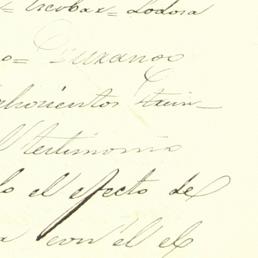 Escobar = Lodosa
o = Suxanos
ochocientos trein-
l testimonio
lo el efecto de
a con él el